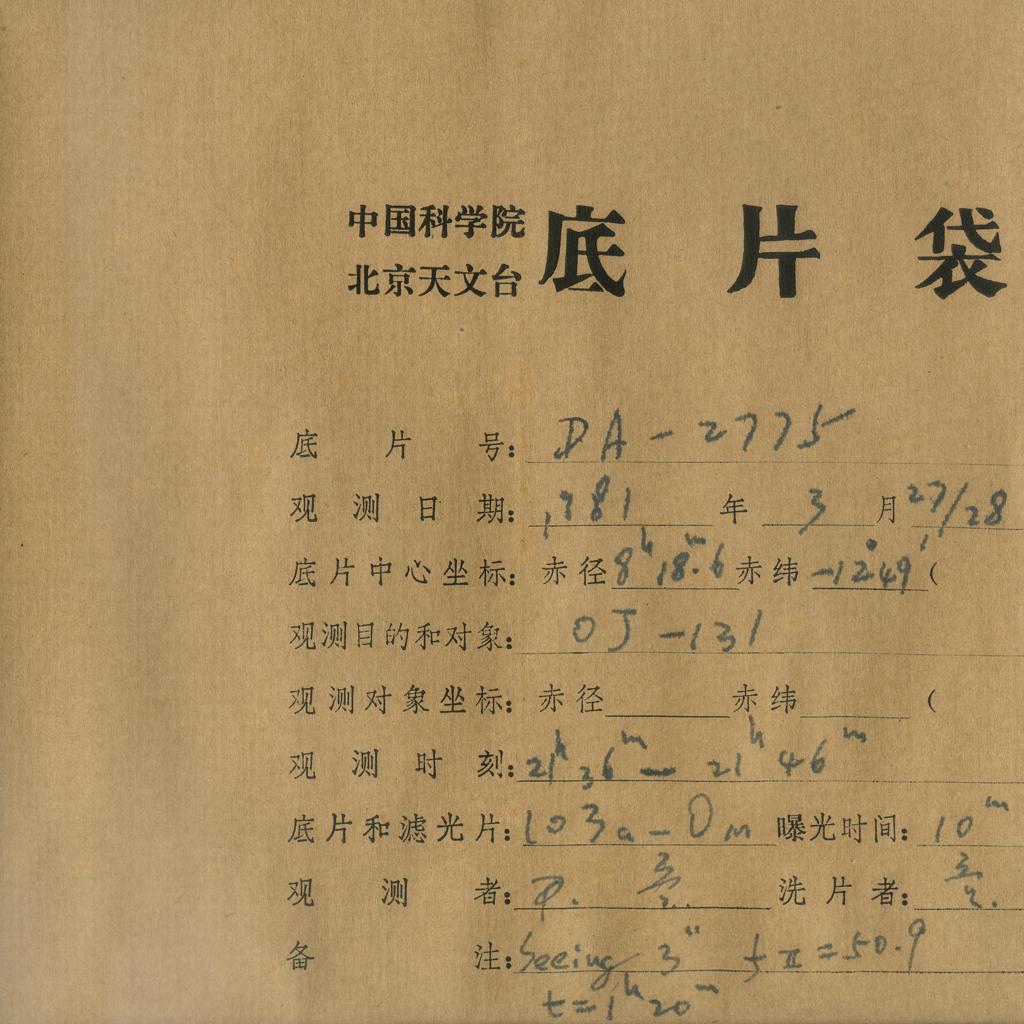 中国科学院
北京天文台 底片袋
底片号: DA-2775
观测日期: 1981 年 3 月 27/28
底片中心坐标: 赤径 8ʰ18ᵐ.6 赤纬 -12°49′ (
观测目的和对象: OJ-131
观测对象坐标: 赤径 赤纬 (
观测时刻: 21ʰ36ᵐ — 21ʰ46ᵐ
底片和滤光片: 103a-O 曝光时间: 10ᵐ
观测者: 洗片者:
备注: Seeing 3″ = 50.9
t=1ʰ20ᵐ